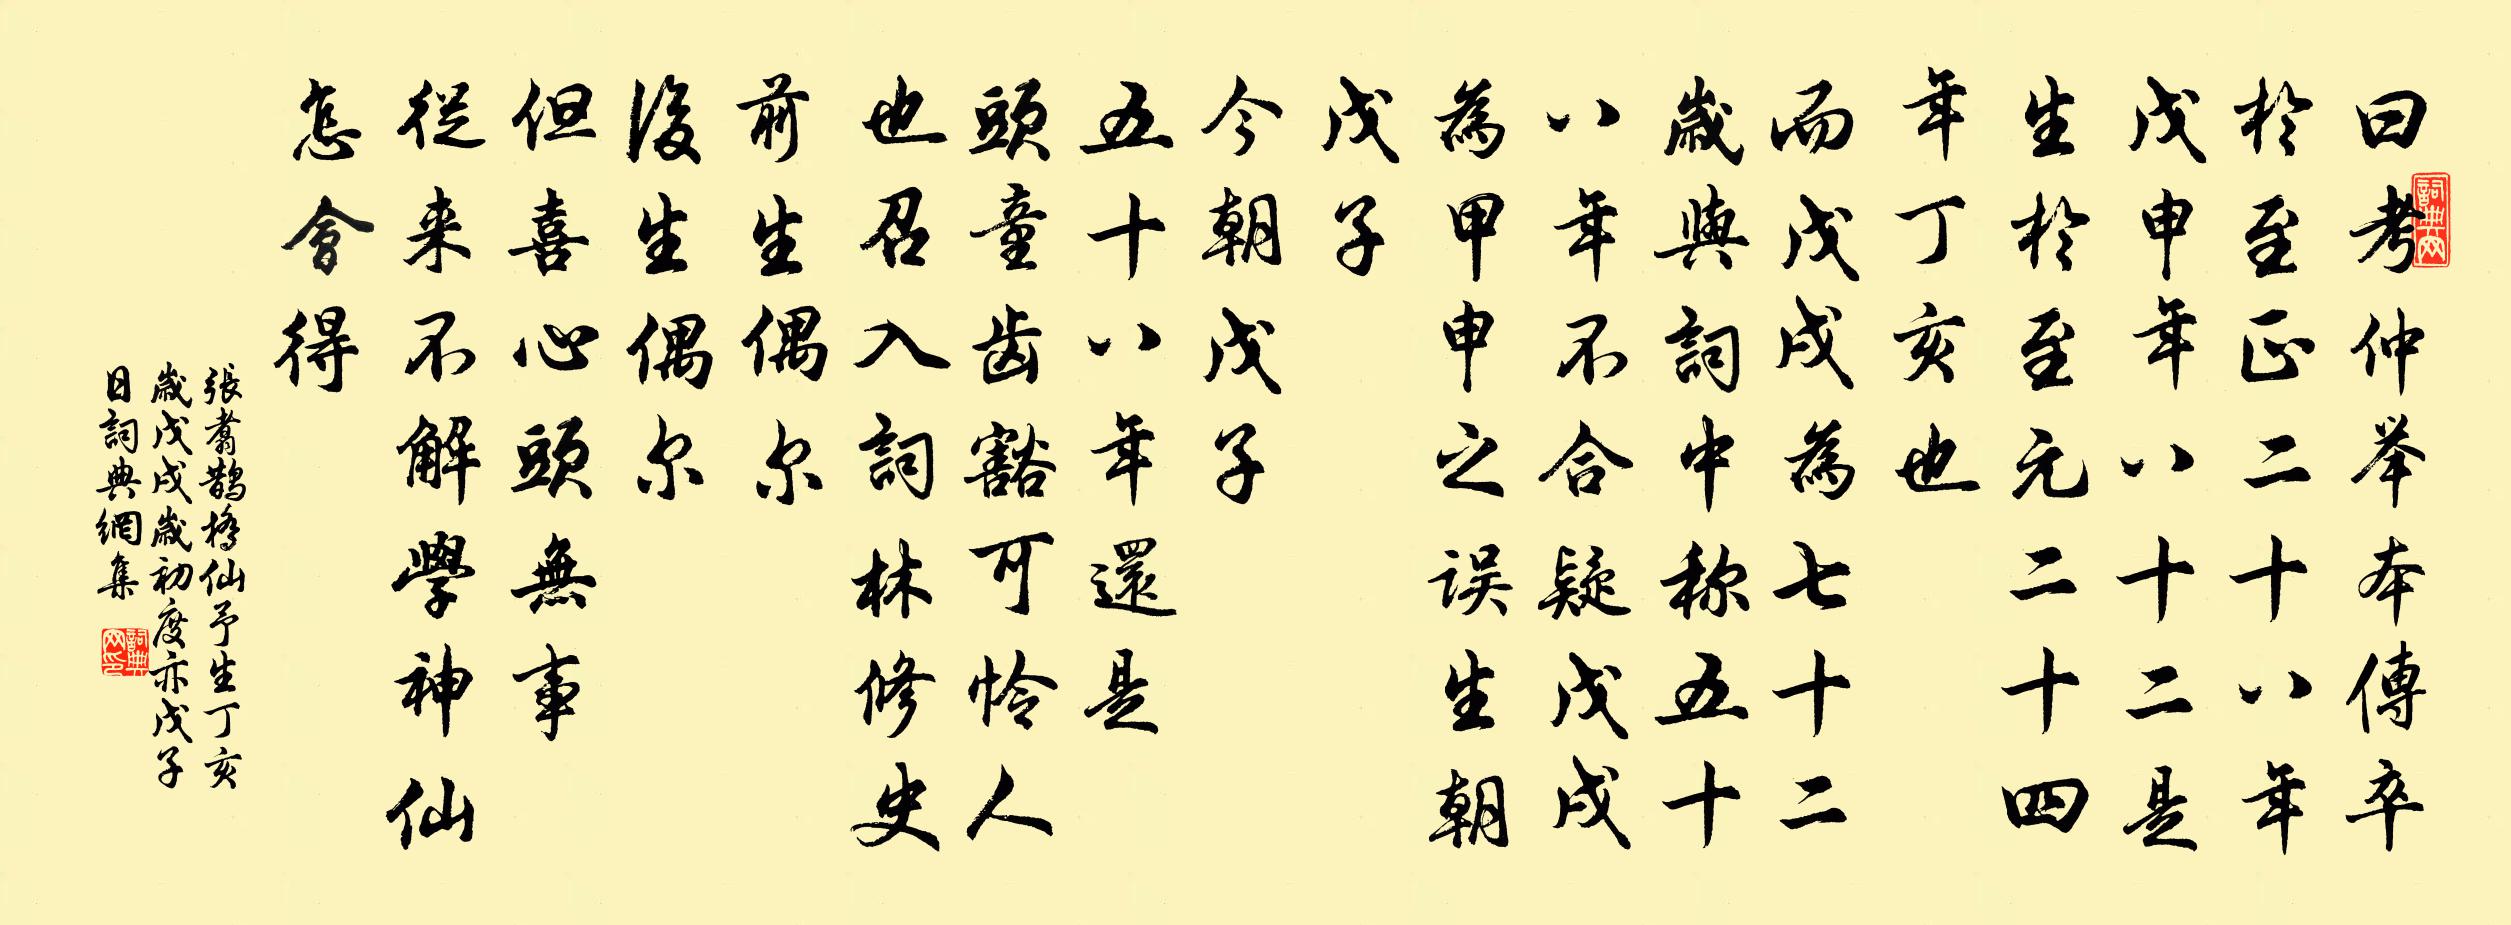 曰考仲举本傳卒
於至正二十八年
戊申年八十二是
生於至元二十四
年丁亥也
而戊戌為七十二
歲與詞中称五十
八年不合疑戊戌
為甲申之误生朝
戊子
今朝戊子
五十八年還是
頭童齿豁可怜人
也召入詞林修史
前生偶尔
後生偶尔
但喜心頭無事
從来不解學神仙
怎會得
張翥鵲橋仙予生丁亥
歲戊戌歲初度亦戊子
日詞典網集
詞典网
詞典网印